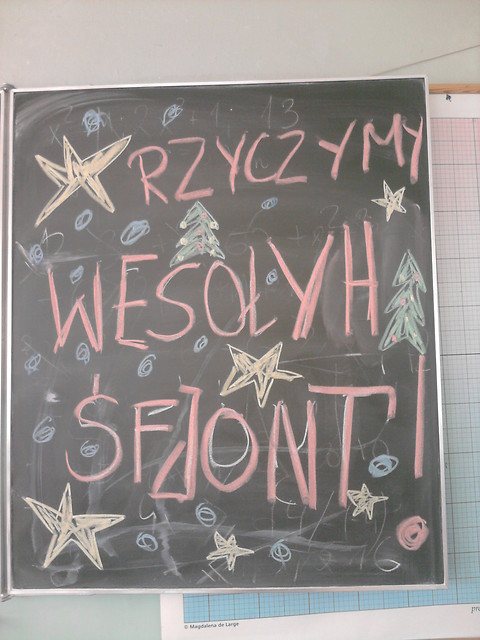 RZYCZYMY
WESOŁYH
ŚFJONT!
© Magdalena de Large